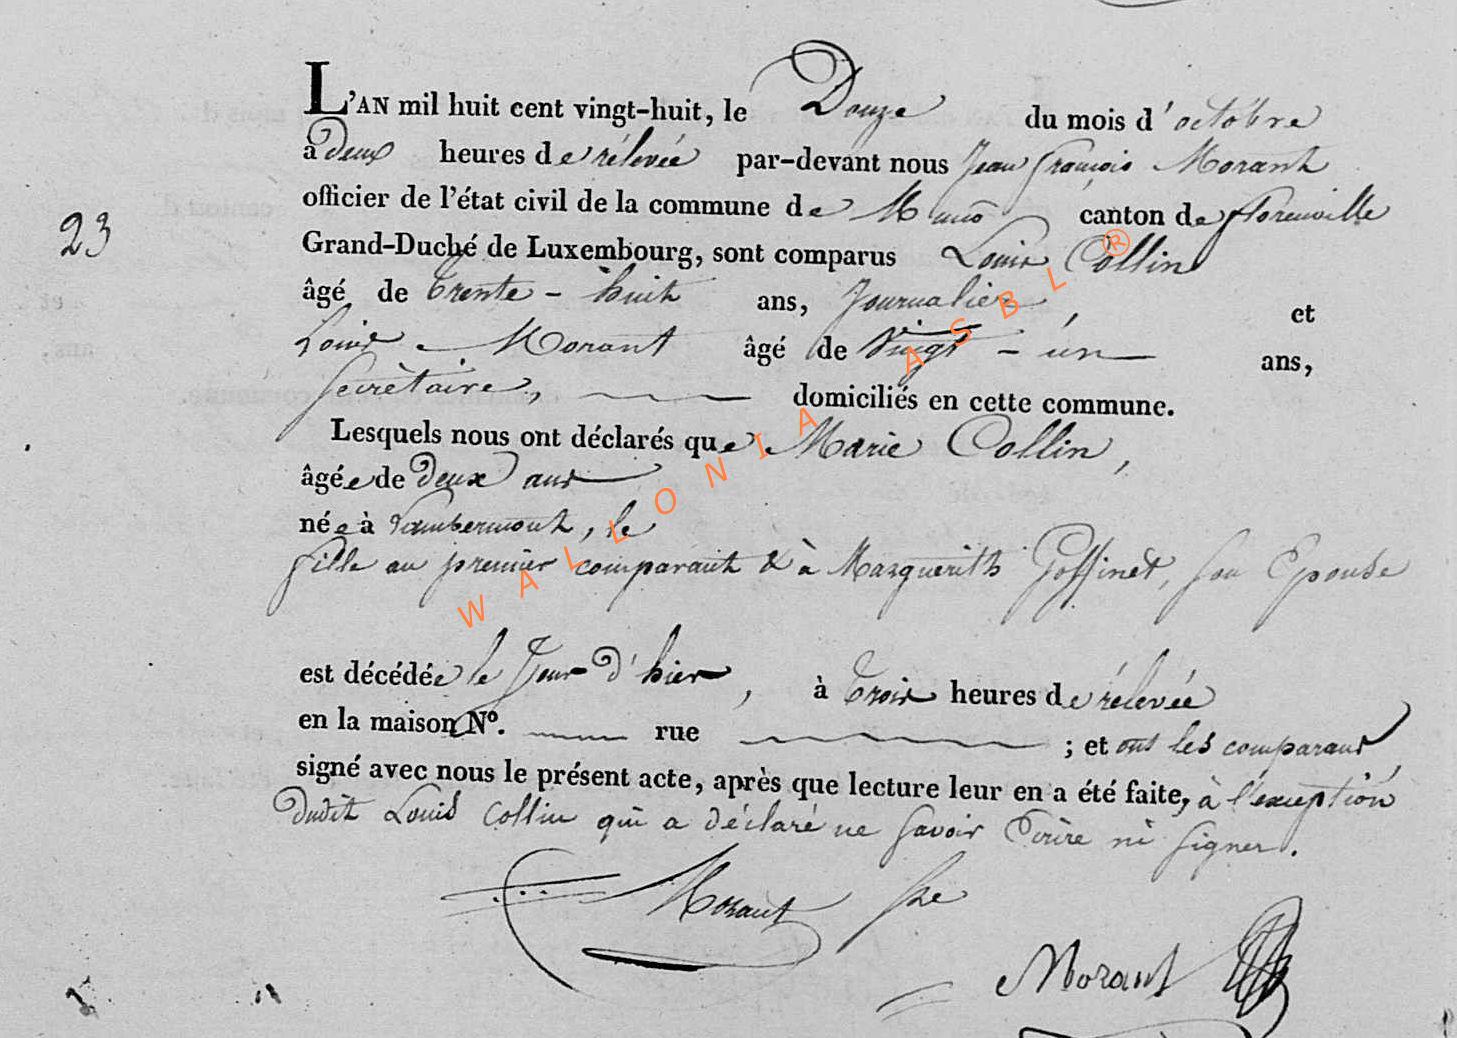 L'AN mil huit cent vingt-huit, le Douze du mois d'octobre
à deux heures de rélevée par-devant nous Jean François Morant
officier de l'état civil de la commune de Muno canton de florenville
23
Grand-Duché de Luxembourg, sont comparus Louis Collin
âgé de trente-huit ans, Journalier et
Louis Morant âgé de Vingt-un ans,
Secrètaire, domiciliés en cette commune.
Lesquels nous ont déclarés que Marie Collin,
âgée de deux ans
née à Lambermont, le
fille au premier comparant & à Marguerith Goffinet, son Epouse
est décédée le Jour d'hier, à trois heures de rélevée
en la maison N°. rue ; et ont les comparans
signé avec nous le présent acte, après que lecture leur en a été faite, à l'exception
dudit Louis Collin qui a déclaré ne savoir Ecrire ni signer.
Morant
Morant
WALLONIA ASBL ®